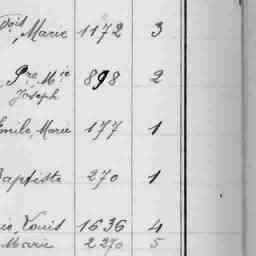 Marie 1172 3
Pre Mie 898 2
Joseph
Emile, Marie 177 1
Baptiste 270 1
Louis 1636 4
Marie 2270 5